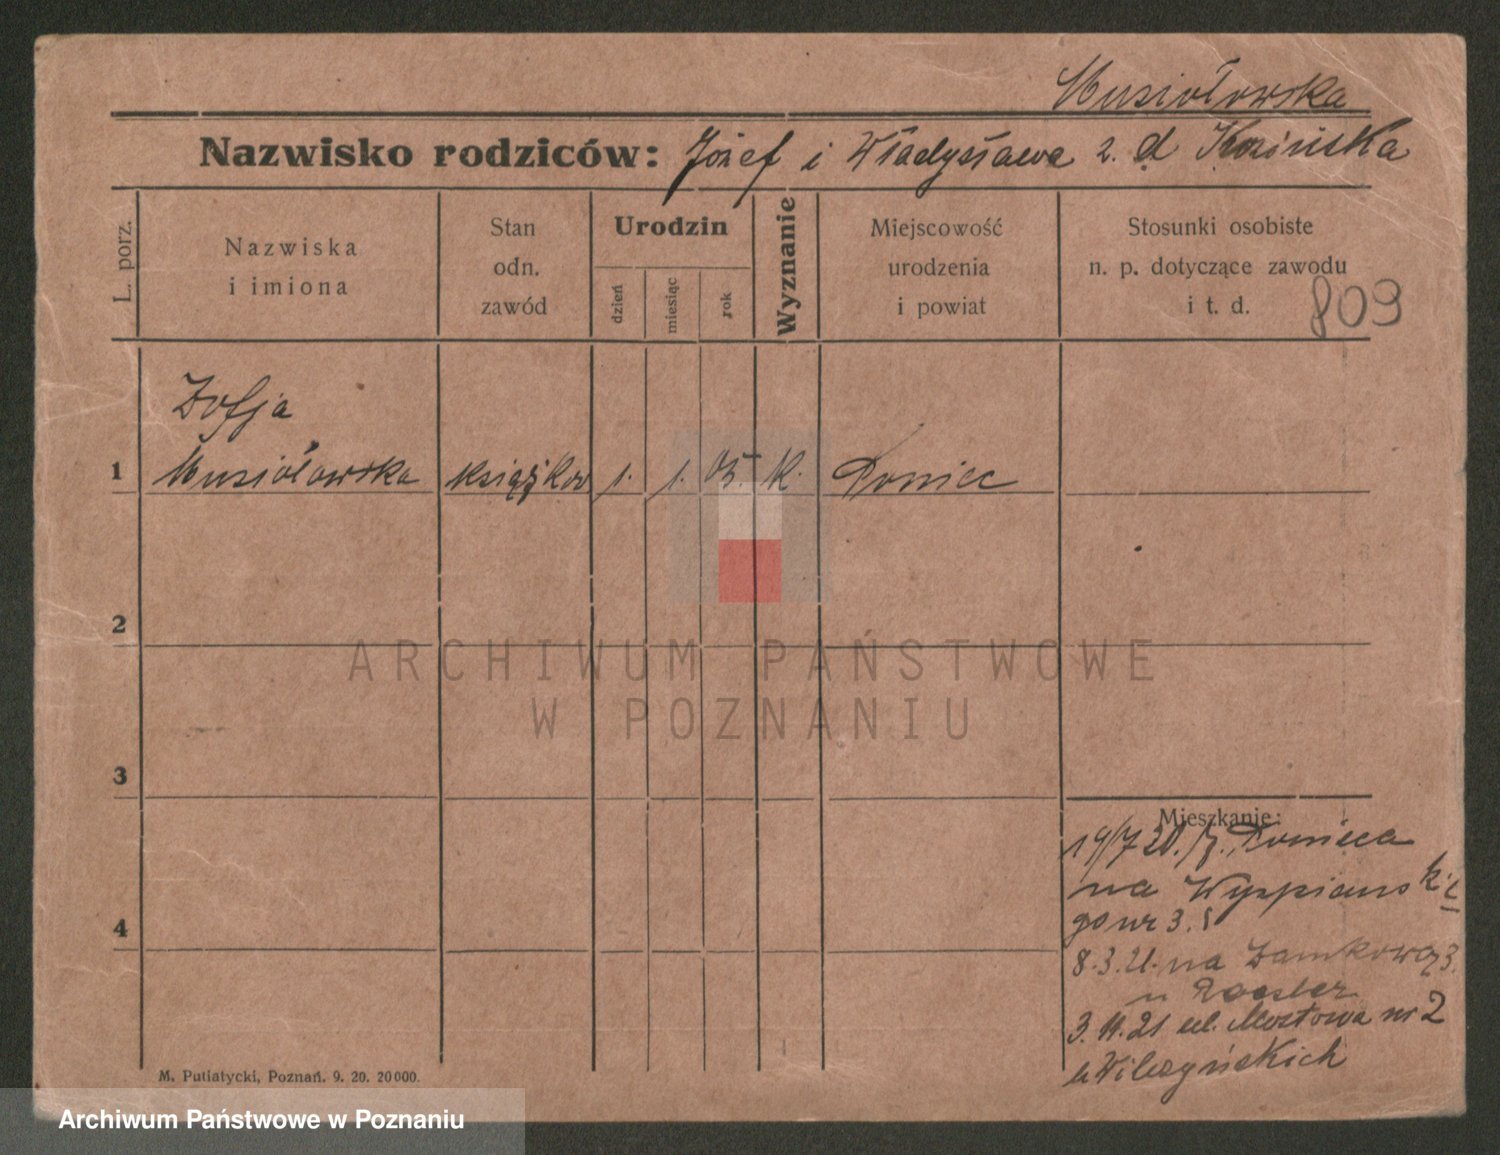 Musiołowska
Nazwisko rodziców: Józef i Władysława z. d. Kozińska
L. porz.
Nazwiska
i imiona
Stan
odn.
zawód
Urodzin
dzień
miesiąc
rok
Wyznanie
Miejscowość
urodzenia
i powiat
Stosunki osobiste
n. p. dotyczące zawodu
i t. d.
809
Zofja
1 Musiołowska książkow 1. 1. 05. k. Poniec
2
3
4
Mieszkanie:
19/7 20. z Ponieca
na Wyspiański
go nr 3.
8.3.21. na Zamkową 3.
u
3.11.21 ul. Mostowa nr 2
u Wilczyńskich
M. Putiatycki, Poznań. 9. 20. 20000.
ARCHIWUM PAŃSTWOWE
W POZNANIU
Archiwum Państwowe w Poznaniu